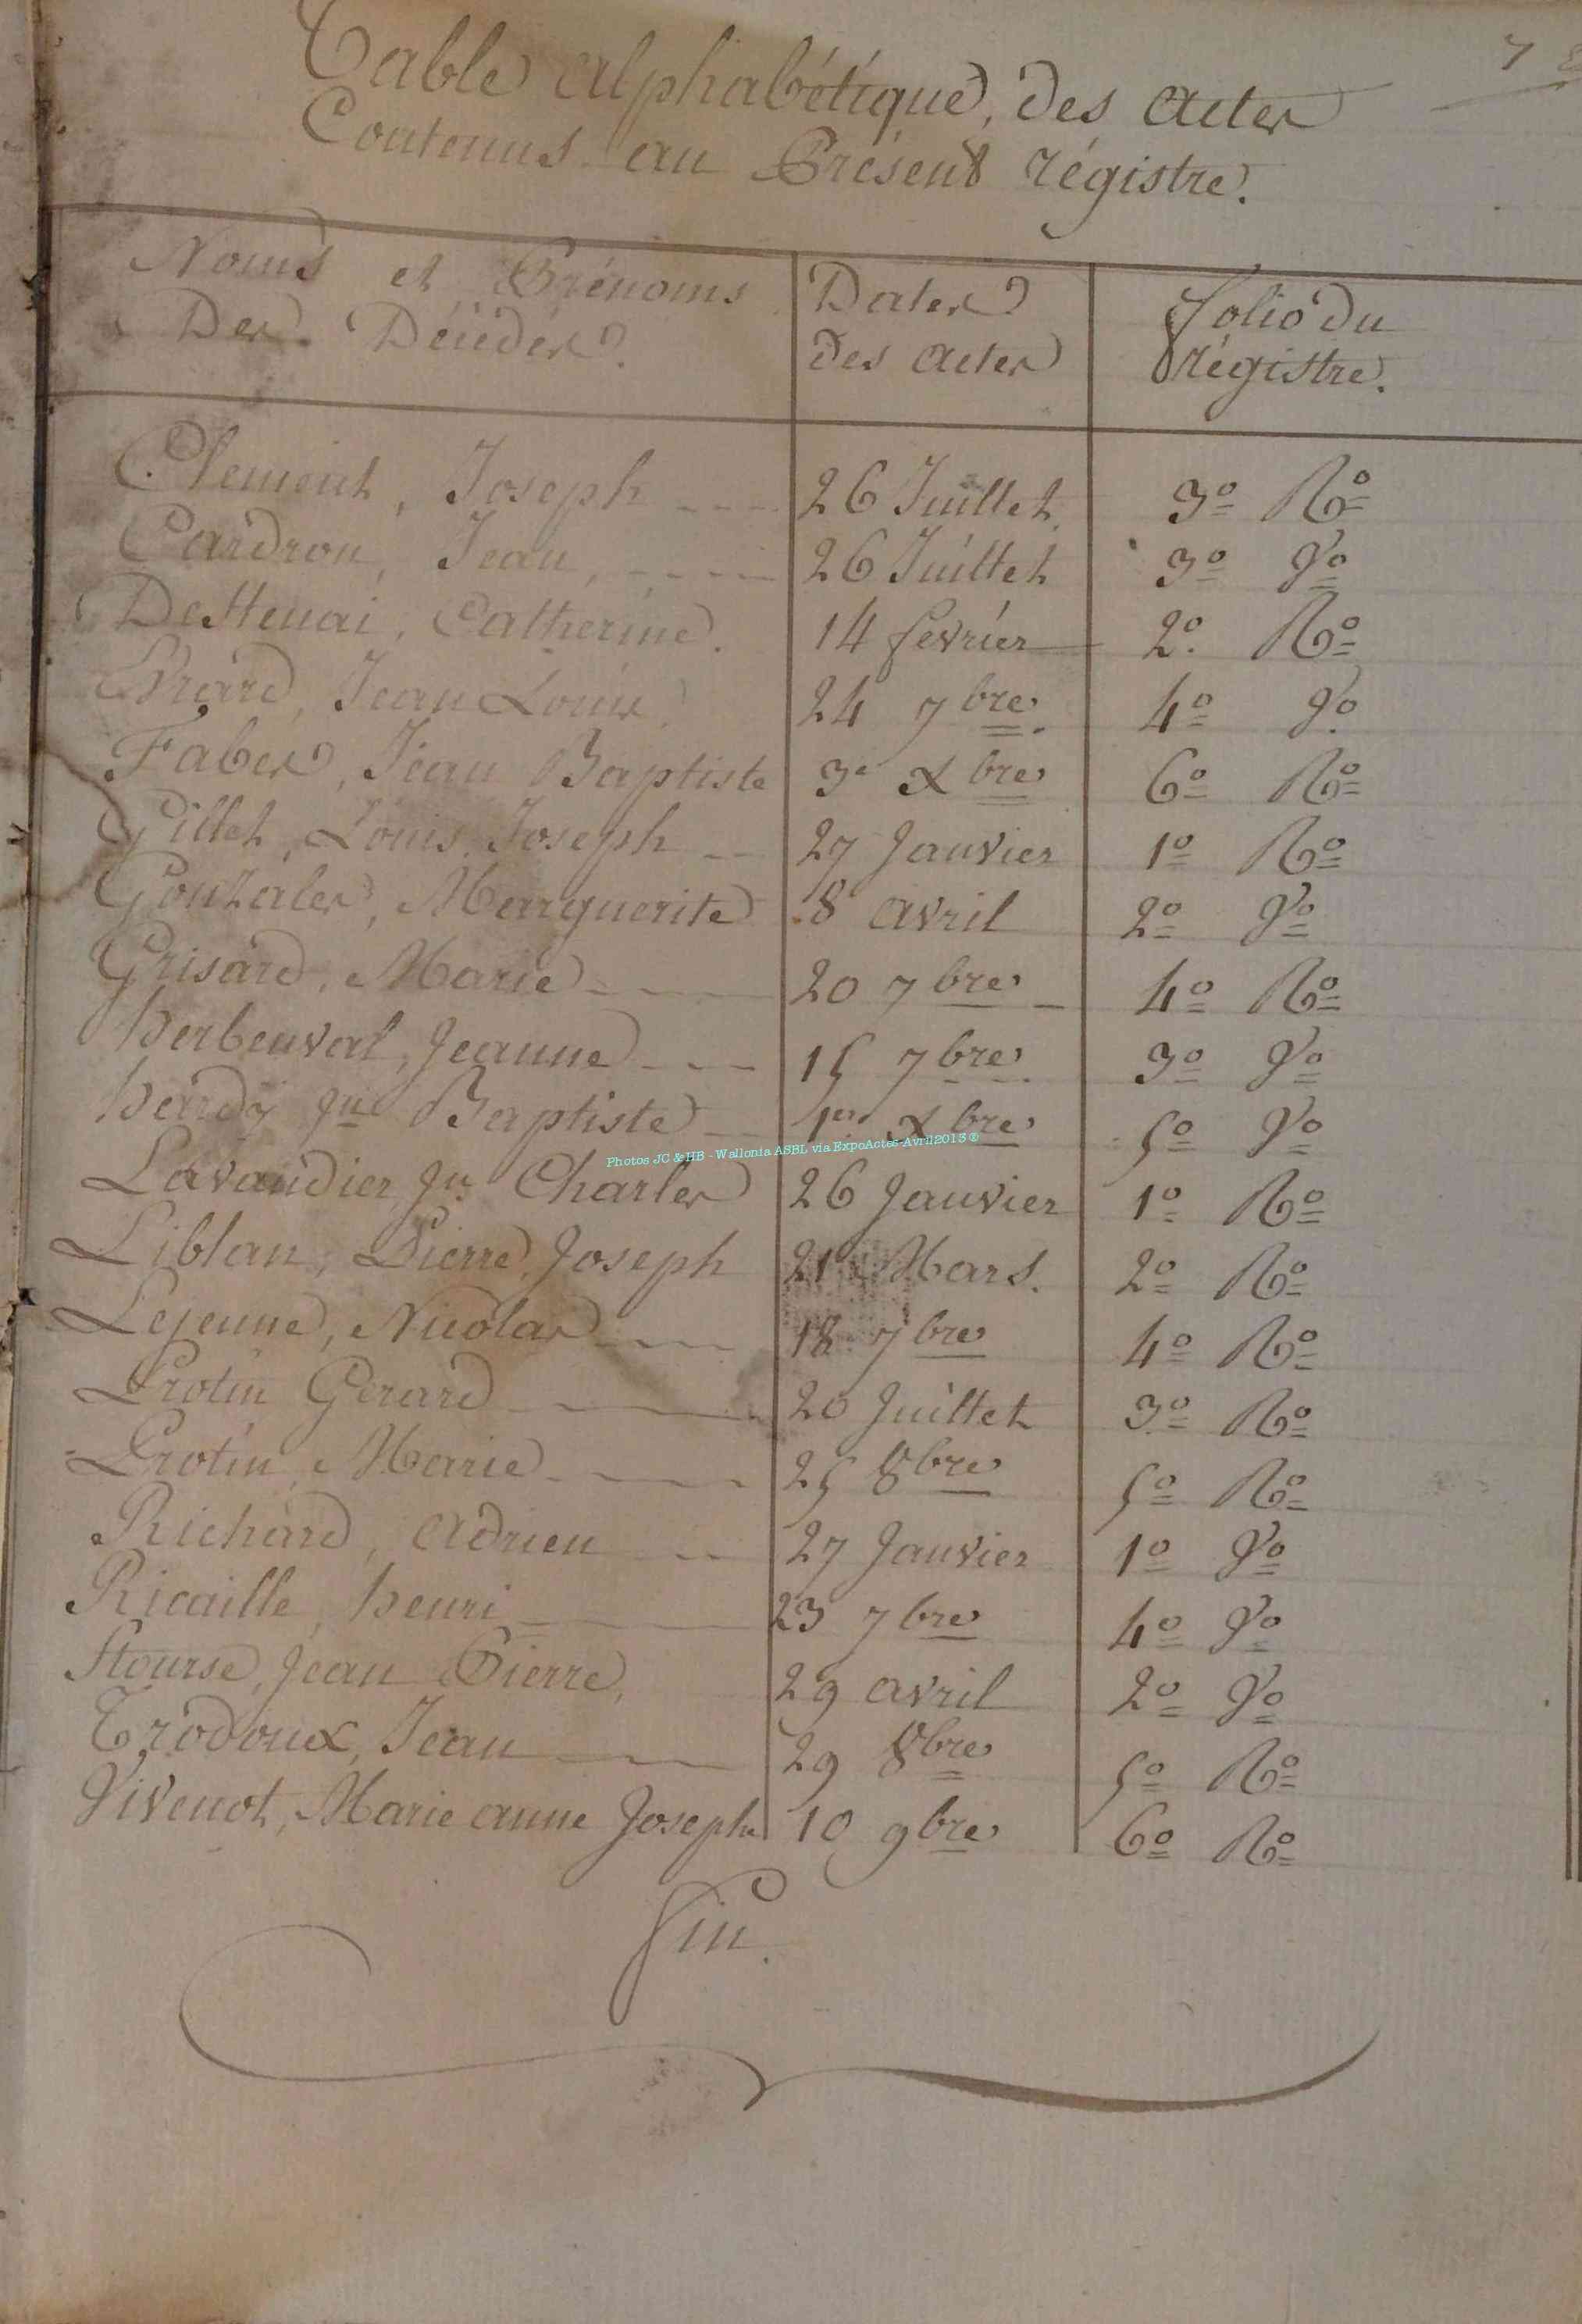 7
Table alphabétique, des actes
Contenus au Présent régistre.
Noms et Prénoms
Des Décédés.
Dates
des actes
folio du
régistre.
Clement, Joseph 26 Juillet 3o Ro
Cardron, Jean, 26 Juillet 3o Vo
Catherine. 14 fevrier 2o Ro
Jean Louis, 24 7bre. 4o Vo
Faber, Jean Baptiste 3e Xbre 6o Ro
Gillet, Louis Joseph 27 Janvier 1o Ro
Gonzales, Marguerite 8 avril 2o Vo
Grisard, Marie 20 7bre 4o Ro
herbeuval, Jeanne 15 7bre 3o Vo
hardy Jn Baptiste 1er Xbre 5o Vo
Lavaudier, Jn Charles 26 Janvier 1o Ro
Liblan, Pierre Joseph 21 Mars. 2o Ro
Lejeune, Nicolas 18 7bre 4o Ro
Protin Gerard 20 Juillet 3o Ro
Protin, Marie 25 8bre 5o Ro
Richard, adrien 27 Janvier 1o Vo
Ricaille, henri 23 7bre 4o Vo
Stourse, Jean Pierre, 29 avril 2o Vo
Trodoux, Jean 29 8bre 5o Ro
Vivenot, Marie anne Joseph 10 9bre 6o Ro
fin.
Photos JC & HB - Wallonia ASBL via ExpoActes-Avril2013 ©